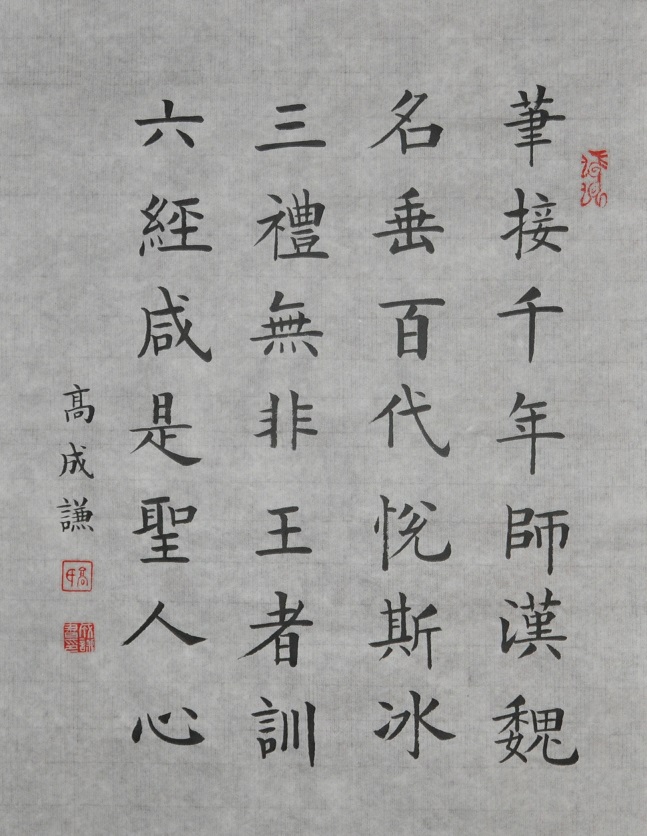 筆接千年師漢魏
名垂百代悅斯冰
三禮無非王者訓
六經咸是聖人心
高成謙